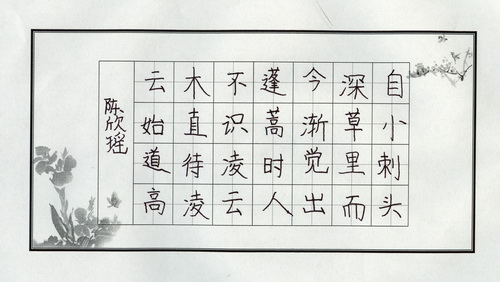 自小刺头
深草里而
今渐觉出
蓬蒿时人
不识凌云
木直待凌
云始道高
陈欣瑶